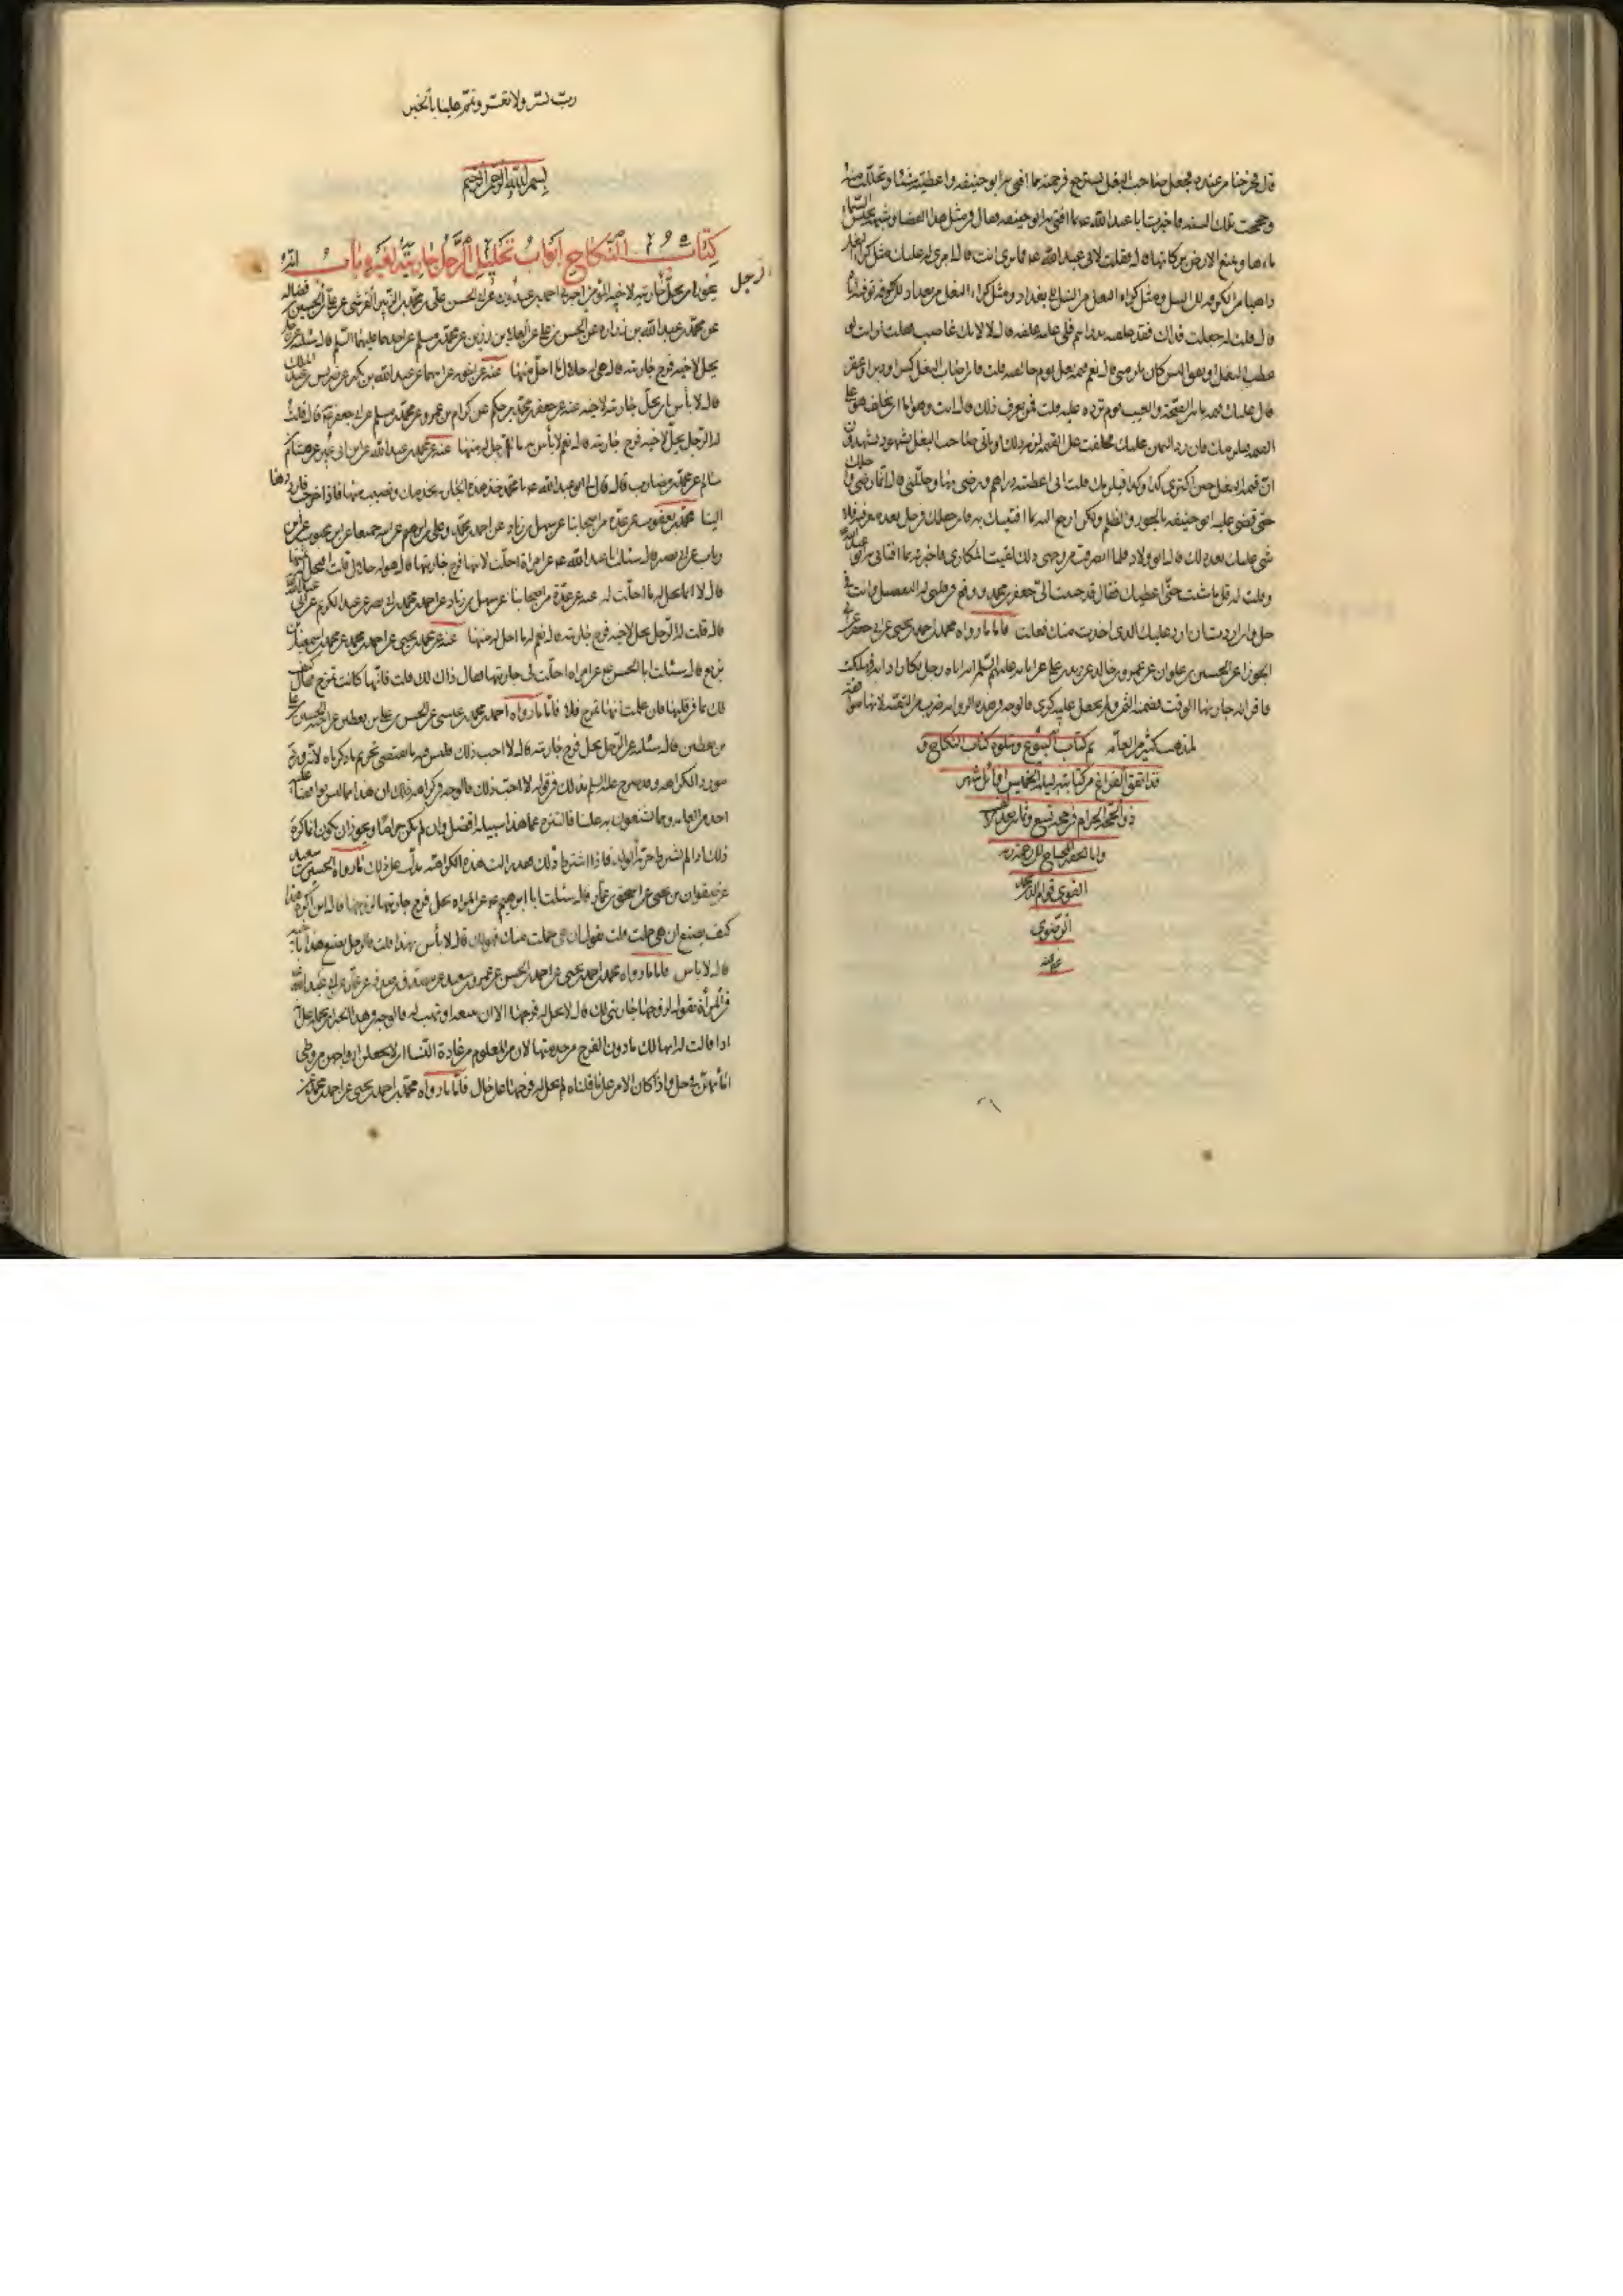 قال فخرجنا من عنده وجعل صاحب البغل يسترجع فرحمته مما افتى به ابو حنيفه واعطيته شيئا وتحللت منه
وحججت تلك السنه فاخبرت ابا عبد الله عه بما افتى به ابو حنيفه فقال في مثل هذا القضاء وشبهه تحبس السماء
ماءها وتمنع الارض بركاتها قال فقلت لابى عبد الله عه فما ترى انت قال ارى له عليك مثل كراء البغل
ذاهبا من الكوفه الى النيل ومثل كراء البغل من النيل الى بغداد ومثل كراء البغل من بغداد الى الكوفه توفيه اياه
قال قلت له جعلت فداك فقد علفته بدراهم فلى عليه علفه قال لا لانك غاصب فقلت ارايت لو
عطب البغل او نفق اليس كان يلزمنى قال نعم قيمه بغل يوم خالفته قلت فان اصاب البغل كسر او دبر او عقر
قال عليك قيمه ما بين الصحة والعيب يوم ترده عليه قلت فمن يعرف ذلك قال انت وهو اما ان يحلف هو على
القيمه فيلزمك فان رد اليمين عليك فحلفت على القيمه لزمه ذلك او ياتى صاحب البغل بشهود يشهدون
ان قيمه البغل حين اكترى كذا وكذا فيلزمك قلت انى اعطيته دراهم ورضى بها وحللنى قال انما رضى وحللك
حتى قضى عليه ابو حنيفه بالجور والظلم ولكن ارجع اليه بما افتيتك به فان جعلك فى حل بعد معرفته فلا
شى عليك بعد ذلك قال ابو ولاد فلما انصرفت من وجهى ذلك لقيت المكارى فاخبرته بما افتانى به ابو عبد الله
وقلت له قل ما شئت حتى اعطيك فقال قد حببت الى جعفر بن محمد ووقع فى قلبى له التفضيل وانت فى
حل وان اردت ان ارد عليك الذى اخذت منك فعلت فاما ما رواه محمد بن احمد بن يحيى عن ابى جعفر عن ابى
الجوزاء عن الحسين بن علوان عن عمرو بن خالد عن زيد بن على عن ابائه عليهم السلم انه اتاه رجل تكارى دابه فهلكت
فاقر انه جاز بها الوقت فضمنه الثمن ولم يجعل عليه كرى فالوجه فى هذه الروايه ضرب من التقيه لانها موافقة
لمذهب كثير من العامه تم كتاب البيوع ويتلوه كتاب النكاح و
قد اتفق الفراغ من كتابته ليلة الخميس اوائل شهر
ذو الحجة الحرام
الرضوى
رب يسر ولا تعسر وتمم علينا بالخير
بسم الله الرحمن الرحيم
كتاب النكاح ابواب تحليل الرجل جاريته لغيره باب انه
يجوز ان يحل الرجل جاريته لاخيه المؤمن اخبرنى احمد بن عبدون عن ابى الحسن على بن محمد بن الزبير القرشى عن على بن الحسن بن فضال
عن محمد بن عبد الله بن زراره عن الحسن بن على عن العلاء بن رزين عن محمد بن مسلم عن احدهما عليهما السلم قال سئلته عن رجل
يحل لاخيه فرج جاريته قال هى له حلال ما احل منها عنه عن اخويه عن ابيهما عن عبد الله بن بكير عن ضريس بن عبد الملك
قال لا بأس بان يحل جاريته لاخيه عنه عن جعفر بن محمد بن حكيم عن كرام بن عمرو عن محمد بن مسلم عن ابى جعفر عه قال قلت
له الرجل يحل لاخيه فرج جاريته قال نعم لا بأس به ما احل له منها عنه عن محمد بن عبد الله عن ابن ابى عمير عن هشام بن
سالم عن محمد بن مضارب قال قال لى ابو عبد الله عه يا محمد خذ هذه الجاريه تخدمك وتصيب منها فاذا خرجت فارددها
الينا محمد بن يعقوب عن عدة من اصحابنا عن سهل بن زياد عن احمد بن محمد وعلى بن ابرهيم عن ابيه جميعا عن ابن محبوب عن ابن
رئاب عن ابى بصير قال سئلت ابا عبد الله عه عن امراة احلت لابنها فرج جاريتها قال هو له حلال قلت افيحل له ثمنها
قال لا انما يحل له ما احلت له عنه عن عدة من اصحابنا عن سهل بن زياد عن احمد بن محمد بن ابى نصر عن عبد الكريم عن ابى عبد الله
قال قلت له الرجل يحل لاخيه فرج جاريته قال نعم له ما احل له منها عنه عن محمد بن يحيى عن احمد بن محمد عن محمد بن اسمعيل بن
بزيع قال سئلت ابا الحسن عه عن امراه احلت لى جاريتها فقال ذاك لك قلت فانها كانت تمزح فقال كيف
لك بما فى قلبها فان علمت انها تمزح فلا فاما ما رواه احمد بن محمد بن عيسى عن الحسن بن على بن يقطين عن اخيه الحسين عن على
بن يقطين قال سئلته عن الرجل يحل فرج جاريته قال لا احب ذلك فليس فيه ما يقتضى تحريم ما ذكرناه لانه ورد
مورد الكراهه وقد صرح عليه السلم بذلك فى قوله لا احب ذلك فالوجه فى كراهيه ذلك ان هذا مما ليس يوافقنا عليه
احد من العامه ومما يشنعون به علينا فالتنزه عما هذا سبيله افضل وان لم يكن حراما ويجوز ان يكون انما كره
ذلك اذا لم يشترط حريه الولد فاذا اشترط ذلك فقد زالت هذه الكراهيه يدل على ذلك ما رواه الحسين بن سعيد
عن صفوان بن يحيى عن اسحق بن عمار قال سئلت ابا ابرهيم عه عن المراه تحل فرج جاريتها لزوجها قال انى اكره هذا
كيف يصنع ان هى حملت قلت تقول ان هى حملت منك فهى لك قال لا بأس بهذا قلت فالرجل يصنع هذا باخيه
قال لا باس فاما ما رواه محمد بن احمد بن يحيى عن احمد بن الحسن عن عمرو بن سعيد عن مصدق بن صدقه عن عمار عن ابى عبد الله
فى المرأة تقول لزوجها جاريتى لك قال لا يحل له فرجها الا ان تبيعه او تهب له فالوجه فى هذا الخبر ان نحمله على
اذا قالت له انها لك ما دون الفرج من خدمتها لان من المعلوم من عادة النساء ان لا يجعلن ازواجهن من وطى
امائهن فى حل واذا كان الامر على ما قلناه لم يحل له فرجها على حال فاما ما رواه محمد بن احمد بن يحيى عن احمد بن محمد عن